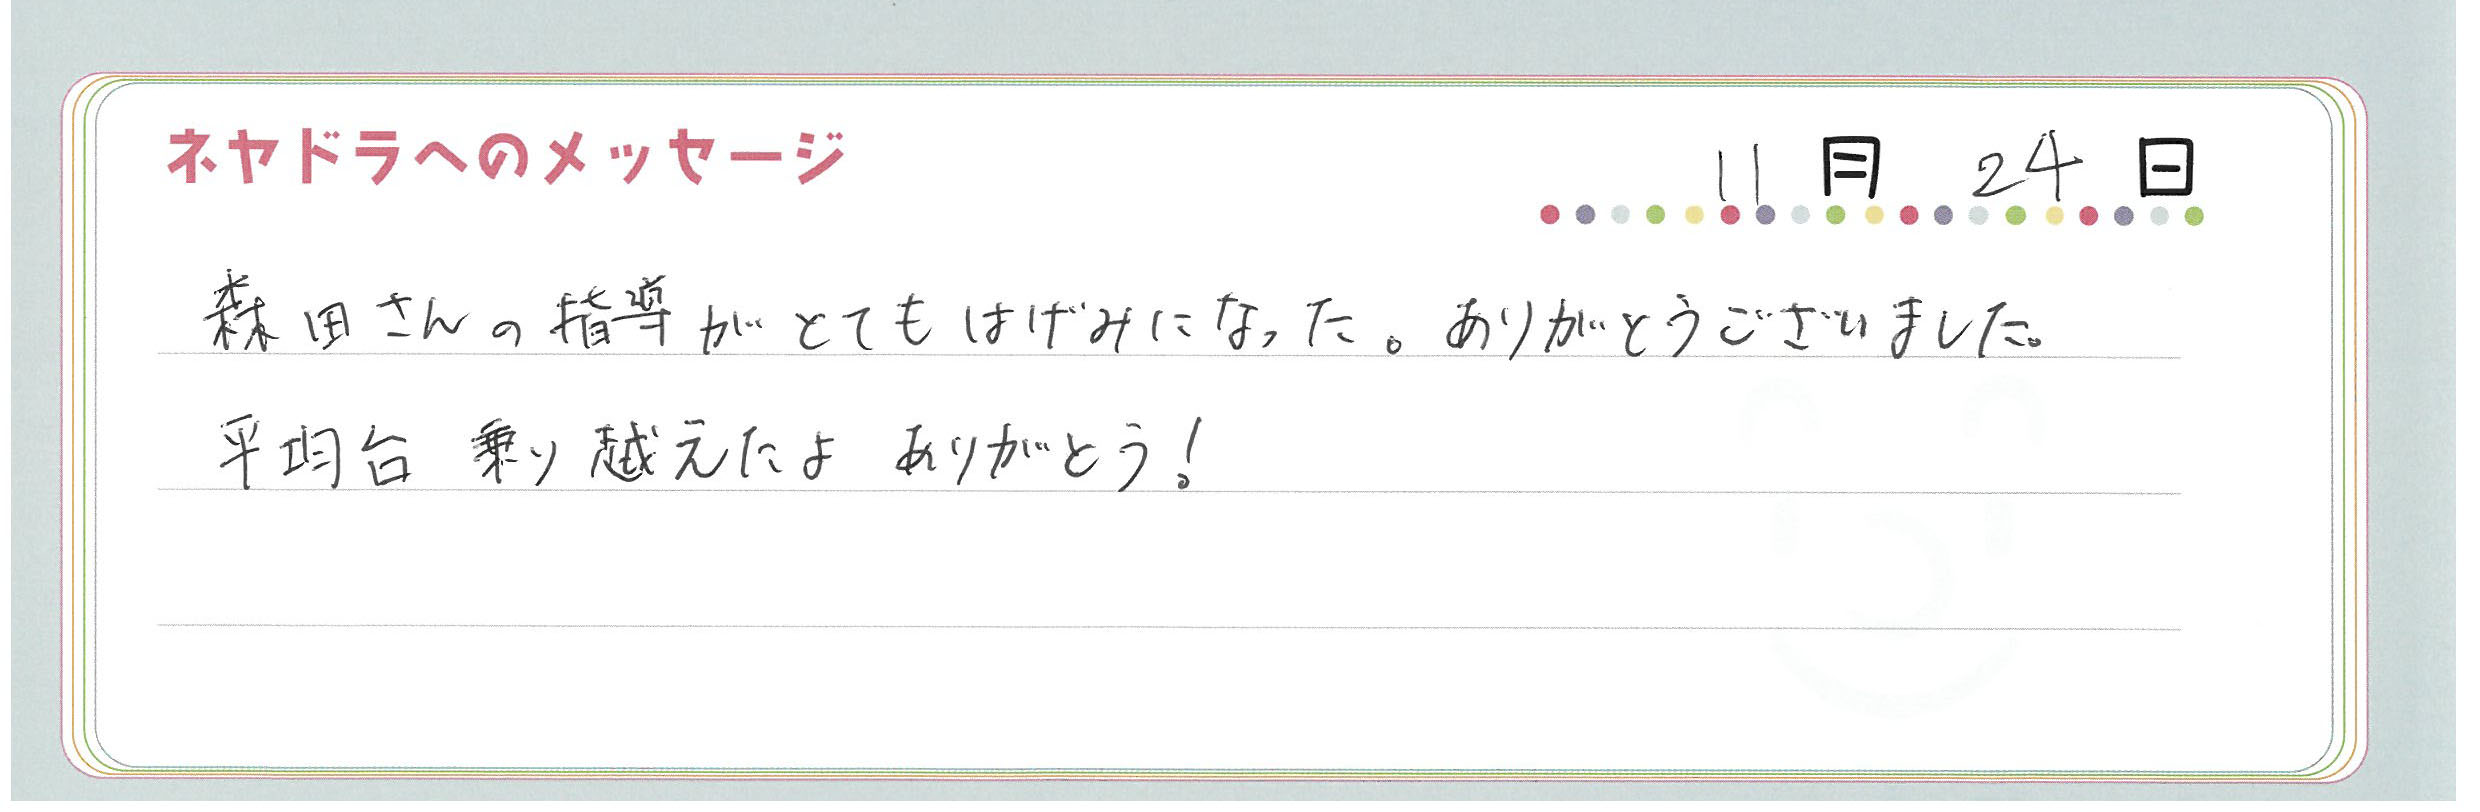 ネヤドラへのメッセージ
11月 24日
森田さんの指導がとてもはげみになった。ありがとうございました。
平均台 乗り越えたよ ありがとう!